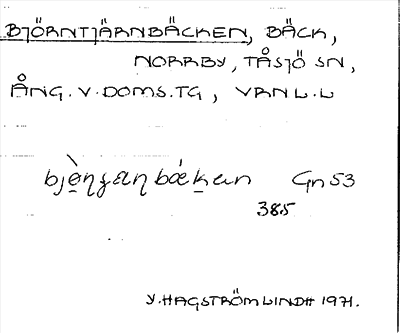 BJÖRNTJÄRNBÄCKEN, BÄCK,
NORRBY, TÅSJÖ SN,
ÅNG. V. DOMS. TG, VRNL.L
Gn 53
385
Y. HAGSTRÖM LINDH 1971.